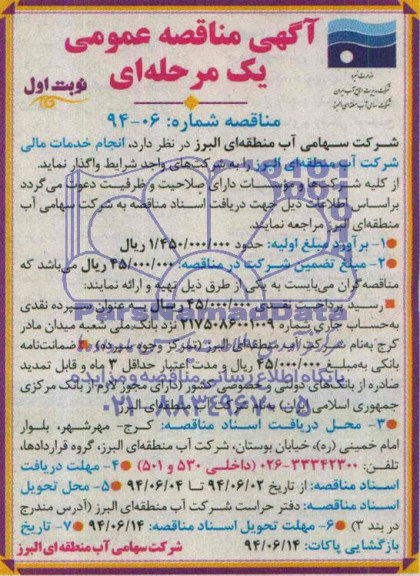 آگهی مناقصه عمومی
یک مرحله‌ای
نوبت اول
وزارت نیرو
شرکت مدیریت منابع آب ایران
شرکت سهامی آب منطقه‌ای البرز
مناقصه شماره: ۰۶-۹۴
شرکت سهامی آب منطقه‌ای البرز در نظر دارد، انجام خدمات مالی
شرکت آب منطقه‌ای البرز را به شرکت‌های واجد شرایط واگذار نماید.
از کلیه شرکت‌ها و مؤسسات دارای صلاحیت و ظرفیت دعوت می‌گردد
براساس اطلاعات ذیل جهت دریافت اسناد مناقصه به شرکت سهامی آب
منطقه‌ای البرز مراجعه نمایند.
۱- برآورد مبلغ اولیه: حدود ۱/۴۵۰/۰۰۰/۰۰۰ ریال
۲- مبلغ تضمین شرکت در مناقصه: ۴۵/۰۰۰/۰۰۰ ریال می‌باشد که
مناقصه‌گران می‌بایست به یکی از طرق ذیل تهیه و ارائه نمایند:
■ رسید پرداخت نقدی ۴۵/۰۰۰/۰۰۰ ریال به عنوان سپرده نقدی
به‌حساب جاری شماره ۲۱۷۵۰۸۶۰۰۱۰۰۹ نزد بانک ملی شعبه میدان مادر
کرج به‌نام شرکت آب منطقه‌ای البرز (تمرکز وجوه سپرده) ■ ضمانت‌نامه
بانکی به‌مبلغ ۴۵/۰۰۰/۰۰۰ ریال و مدت اعتبار حداقل ۳ ماه و قابل تمدید
صادره از بانک‌های دولتی و خصوصی کشور (دارای مجوز لازم از بانک مرکزی
جمهوری اسلامی ایران) به‌نام شرکت آب منطقه‌ای البرز
۳- محل دریافت اسناد مناقصه: کرج- مهرشهر، بلوار
امام خمینی (ره)، خیابان بوستان، شرکت آب منطقه‌ای البرز، گروه قراردادها،
تلفن: ۳۳۳۴۲۳۰۰-۰۲۶ (داخلی ۵۳۰ و ۵۰۱) ۴- مهلت دریافت
اسناد مناقصه: از تاریخ ۹۴/۰۶/۰۲ تا ۹۴/۰۶/۰۴ ۵- محل تحویل
اسناد مناقصه: دفتر حراست شرکت آب منطقه‌ای البرز (آدرس مندرج
در بند ۳) ۶- مهلت تحویل اسناد مناقصه: ۹۴/۰۶/۱۴ ۷- تاریخ
بازگشایی پاکات: ۹۴/۰۶/۱۴
شرکت سهامی آب منطقه‌ای البرز
ParsNamadData
پایگاه اطلاع‌رسانی مناقصه و مزایده
۰۲۱-۸۸۳۴۹۶۷۰-۵